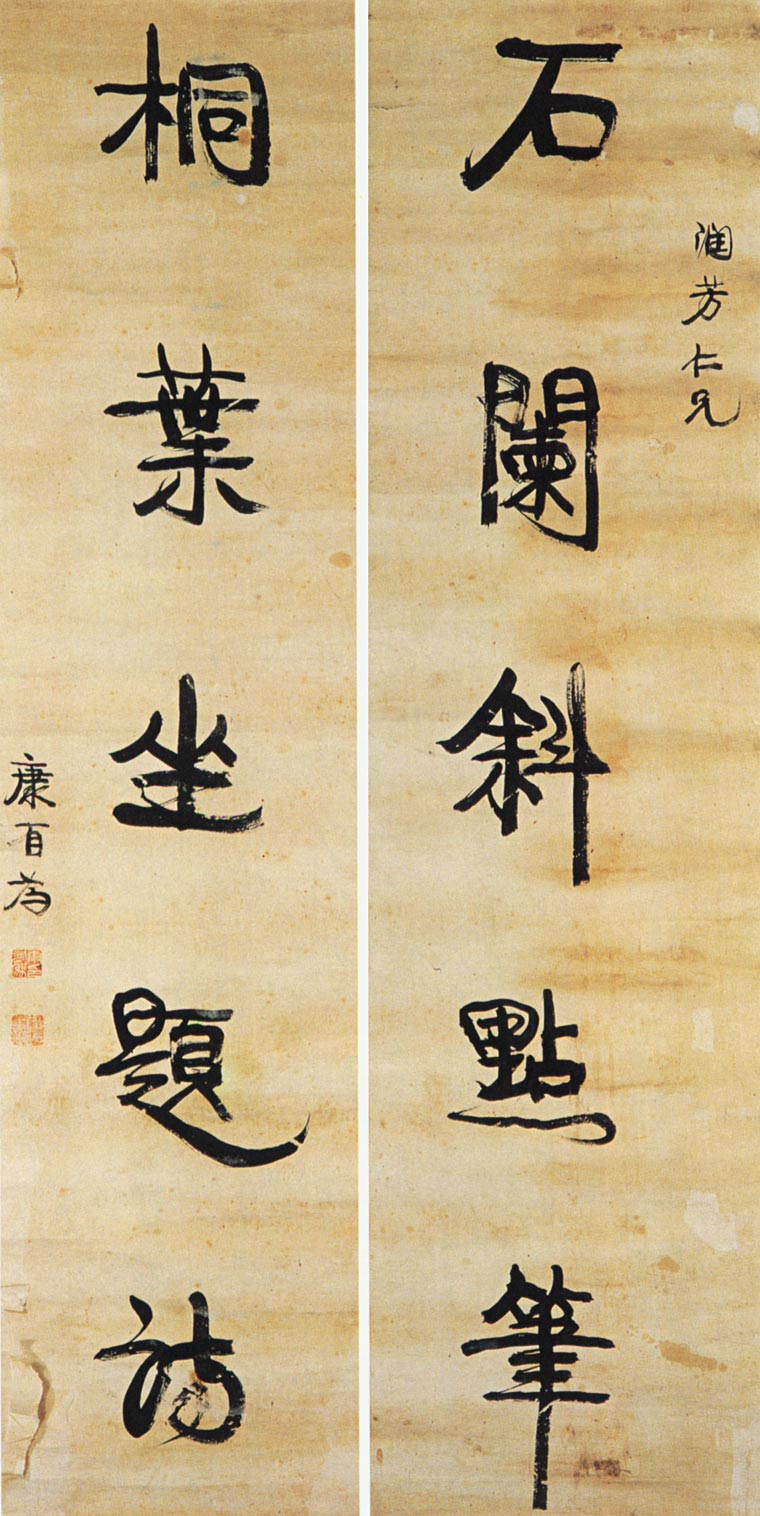 石闌斜點筆
潤芳仁兄
桐葉坐題詩
康有為